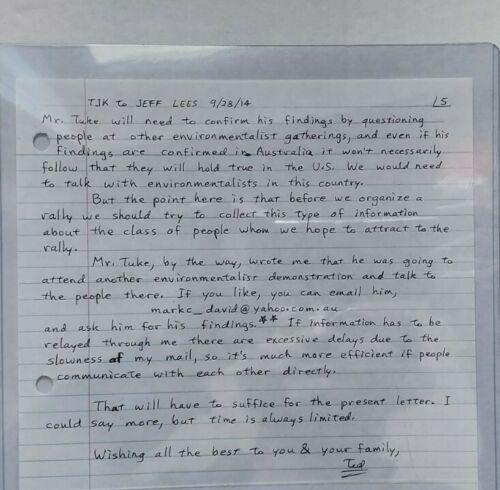 TJK to JEFF LEES 9/28/14 15
Mr. Tuke will need to confirm his findings by questioning
people at other environmentalist gatherings, and even if his
findings are confirmed in Australia it won't necessarily
follow that they will hold true in the U.S. We would need
to talk with environmentalists in this country.
But the point here is that before we organize a
rally we should try to collect this type of information
about the class of people whom we hope to attract to the
rally.
Mr. Tuke, by the way, wrote me that he was going to
attend another environmentalist demonstration and talk to
the people there. If you like, you can email him,
markc_david@yahoo.com.au
and ask him for his findings.** If information has to be
relayed through me there are excessive delays due to the
slowness of my mail, so it's much more efficient if people
communicate with each other directly.
That will have to suffice for the present letter. I
could say more, but time is always limited.
Wishing all the best to you & your family,
Ted